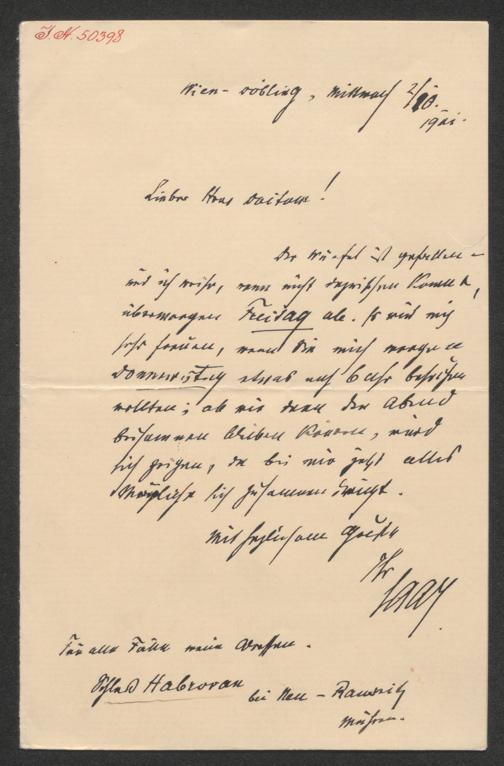 J.N. 50398
Wien-Döbling, Mittwoch 2/10.
1901.
Lieber Herr Doctor!
Der Würfel ist gefallen –
und ich reise, wenn nichts dazwischen kommt,
übermorgen Freitag ab. Es wird mich
sehr freuen, wenn Sie mich morgen
Donnerstag etwas nach 6 Uhr besuchen
wollten; ob wir dann den Abend
beisammen bleiben können, wird
sich zeigen, da bei mir jetzt alles
Mögliche sich zusammen drängt.
Mit herzlichem Gruße
Ihr
Saar
Für alle Fälle meine Adresse.
Schloß Habrovan
bei Neu-Raussnitz
Mähren.